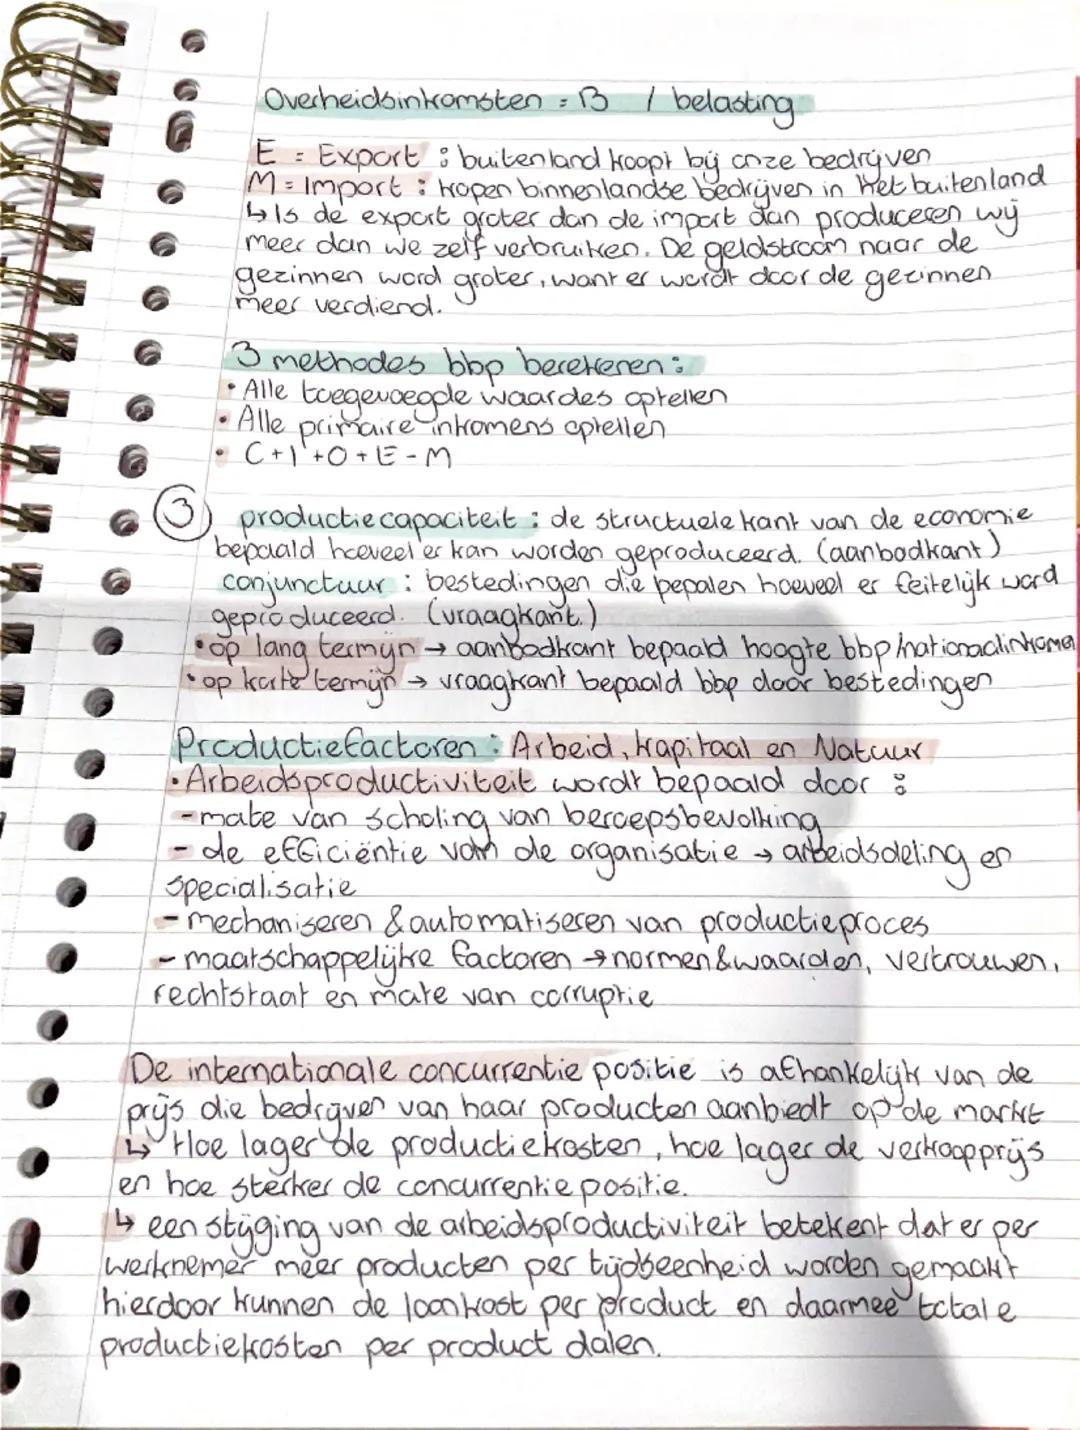 Overheidsinkomsten = B / belasting
E = Export : buitenland koopt bij onze bedrijven
M = Import : kopen binnenlandse bedrijven in het buitenland
↳ Is de export groter dan de import dan produceren wij
meer dan we zelf verbruiken. De geldstroom naar de
gezinnen word groter, want er wordt door de gezinnen
meer verdiend.
3 methodes bbp berekenen :
• Alle toegevoegde waardes optellen
• Alle primaire inkomens optellen
• C+I+O+E-M
3) productiecapaciteit : de structuele kant van de economie
bepaald hoeveel er kan worden geproduceerd. (aanbodkant)
conjunctuur : bestedingen die bepalen hoeveel er feitelijk word
geproduceerd. (vraagkant.)
• op lang termijn → aanbodkant bepaald hoogte bbp/nationaalinkomen
• op korte termijn → vraagkant bepaald bbp door bestedingen
Productiefactoren : Arbeid, kapitaal en Natuur
• Arbeidsproductiviteit wordt bepaald door :
- mate van scholing van beroepsbevolking
- de efficiëntie van de organisatie → arbeidsdeling en
specialisatie
- mechaniseren & automatiseren van productieproces
- maatschappelijke factoren → normen & waarden, vertrouwen,
rechtstaat en mate van corruptie
De internationale concurrentie positie is afhankelijk van de
prijs die bedrijven van haar producten aanbiedt op de markt
↳ Hoe lager de productiekosten, hoe lager de verkoopprijs
en hoe sterker de concurrentiepositie.
↳ een stijging van de arbeidsproductiviteit betekent dat er per
werknemer meer producten per tijdseenheid worden gemaakt
hierdoor kunnen de loonkost per product en daarmee totale
productiekosten per product dalen.